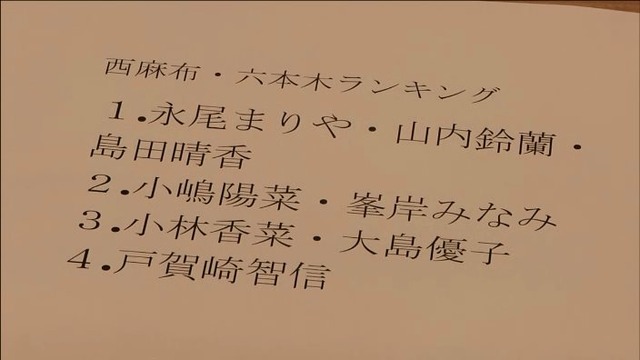 西麻布・六本木ランキング
1.永尾まりや・山内鈴蘭・
島田晴香
2.小嶋陽菜・峯岸みなみ
3.小林香菜・大島優子
4.戸賀崎智信